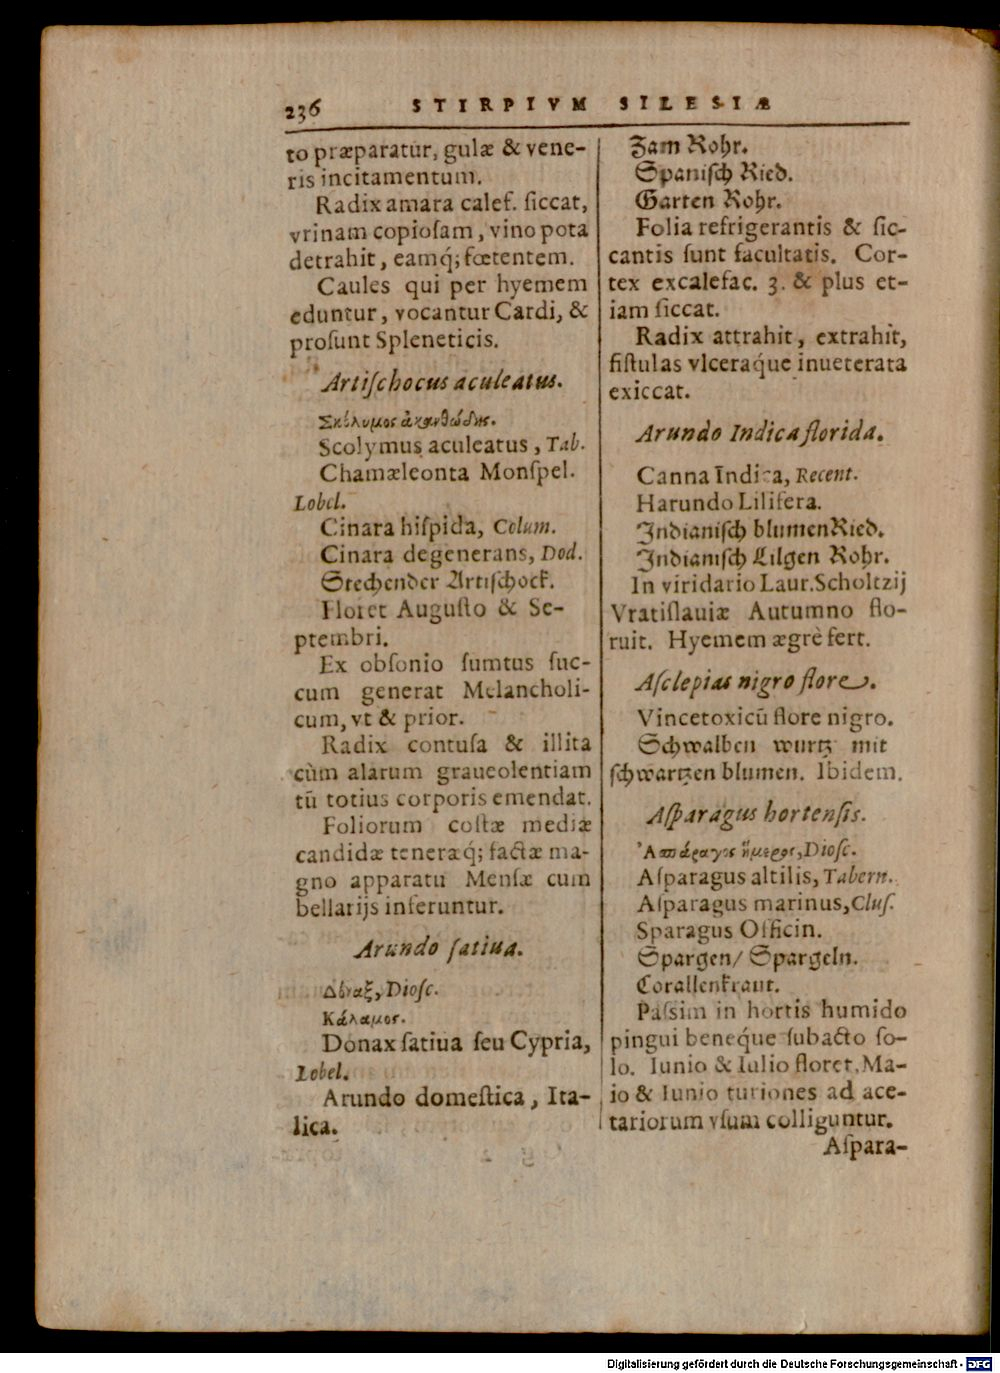 236 STIRPIVM SILESIÆ
to præparatur, gulæ & vene-
ris incitamentum.
Radix amara calef. ſiccat,
vrinam copioſam, vino pota
detrahit, eamq́; fœtentem.
Caules qui per hyemem
eduntur, vocantur Cardi, &
proſunt Spleneticis.
Artiſchocus aculeatus.
Σκόλυμος ἀκανθώδης.
Scolymus aculeatus, Tab.
Chamæleonta Monſpel.
Lobel.
Cinara hiſpida, Colum.
Cinara degenerans, Dod.
Stechender Artiſchock.
Floret Auguſto & Se-
ptembri.
Ex obſonio ſumtus ſuc-
cum generat Melancholi-
cum, vt & prior.
Radix contuſa & illita
cùm alarum graueolentiam
tū totius corporis emendat.
Foliorum coſtæ mediæ
candidæ teneræq́; factæ ma-
gno apparatu Menſæ cum
bellarijs inferuntur.
Arundo ſatiua.
Δόναξ, Dioſc.
Κάλαμος.
Donax ſatiua ſeu Cypria,
Lobel.
Arundo domeſtica, Ita-
lica.
Zam Rohr.
Spaniſch Ried.
Garten Rohr.
Folia refrigerantis & ſic-
cantis ſunt facultatis. Cor-
tex excalefac. 3. & plus et-
iam ſiccat.
Radix attrahit, extrahit,
fiſtulas vlceraq́ue inueterata
exiccat.
Arundo Indica florida.
Canna Indica, Recent.
Harundo Lilifera.
Indianiſch blumen Ried.
Indianiſch Lilgen Rohr.
In viridario Laur. Scholtzij
Vratiſlauiæ Autumno flo-
ruit. Hyemem ægrè fert.
Aſclepias nigro flore.
Vincetoxicū flore nigro.
Schwalben wurtz mit
ſchwartzen blumen. Ibidem.
Aſparagus hortenſis.
Ἀσπάραγος ἥμερος, Dioſc.
Aſparagus altilis, Tabern.
Aſparagus marinus, Cluſ.
Sparagus Officin.
Spargen/ Spargeln.
Corallenkraut.
Paſsim in hortis humido
pingui beneq́ue ſubacto ſo-
lo. Iunio & Iulio floret. Ma-
io & Iunio turiones ad ace-
tariorum vſum colliguntur.
Aſpara-
Digitalisierung gefördert durch die Deutsche Forschungsgemeinschaft - DFG